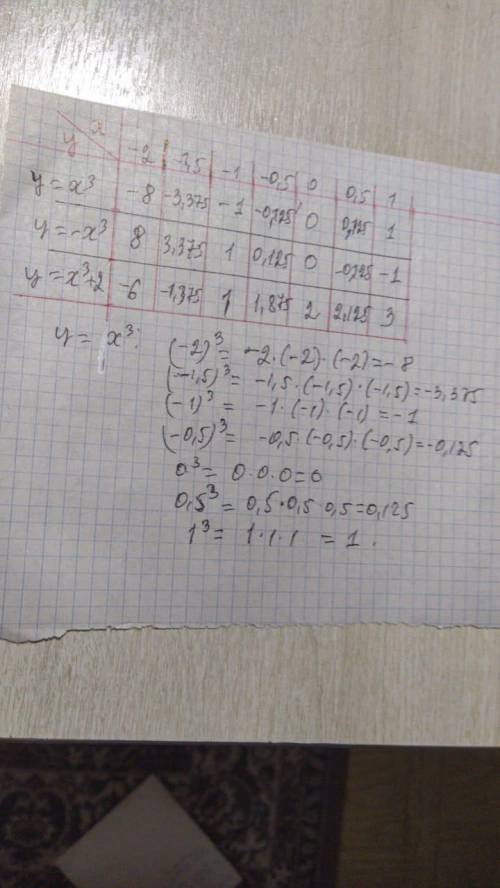 x
y -2 -1,5 -1 -0,5 0 0,5 1
y = x³ -8 -3,375 -1 -0,125 0 0,125 1
y = -x³ 8 3,375 1 0,125 0 -0,125 -1
y = x³+2 -6 -1,375 1 1,875 2 2,125 3
y = x³:
(-2)³ = -2·(-2)·(-2) = -8
(-1,5)³ = -1,5·(-1,5)·(-1,5) = -3,375
(-1)³ = -1·(-1)·(-1) = -1
(-0,5)³ = -0,5·(-0,5)·(-0,5) = -0,125
0³ = 0·0·0 = 0
0,5³ = 0,5·0,5·0,5 = 0,125
1³ = 1·1·1 = 1.